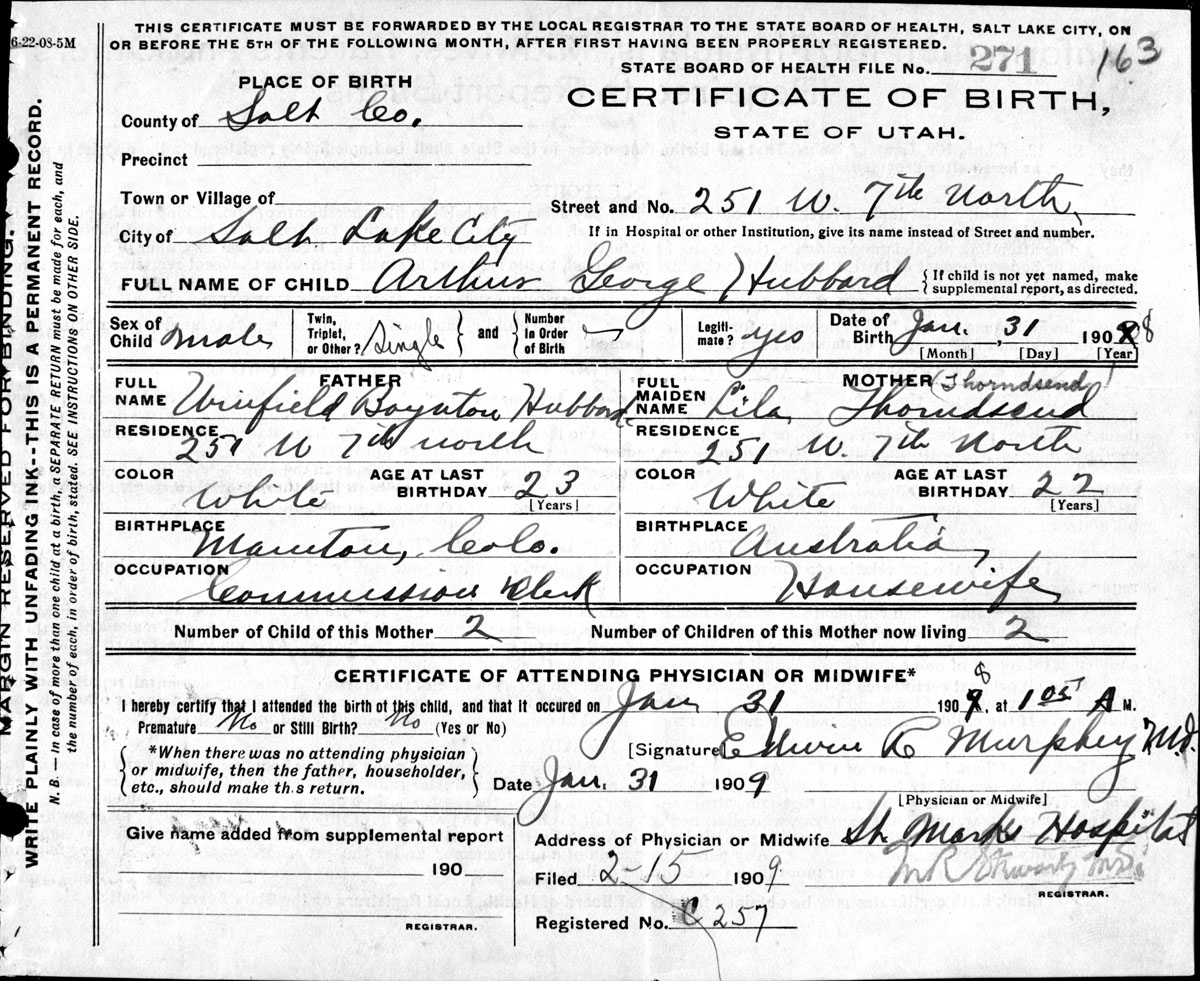 THIS CERTIFICATE MUST BE FORWARDED BY THE LOCAL REGISTRAR TO THE STATE BOARD OF HEALTH, SALT LAKE CITY, ON
OR BEFORE THE 5TH OF THE FOLLOWING MONTH, AFTER FIRST HAVING BEEN PROPERLY REGISTERED.
6-22-08-5M
STATE BOARD OF HEALTH FILE No. 271 163
PLACE OF BIRTH
CERTIFICATE OF BIRTH,
STATE OF UTAH.
County of Salt Co.
Precinct
Town or Village of
Street and No. 251 W. 7th North,
City of Salt Lake City
If in Hospital or other Institution, give its name instead of Street and number.
FULL NAME OF CHILD Arthur George Hubbard { If child is not yet named, make
supplemental report, as directed.
Sex of Child Male
Twin, Triplet, or Other? Single } and { Number in Order of Birth
Legiti-mate? yes
Date of Birth Jan. 31, 190 8
[Month] [Day] [Year]
FATHER
FULL NAME Winfield Boynton Hubbard
MOTHER (Thorndsend)
FULL MAIDEN NAME Lila Thorndsend
RESIDENCE 251 W 7th North
RESIDENCE 251 W. 7th North
COLOR White
AGE AT LAST BIRTHDAY 23
[Years]
COLOR White
AGE AT LAST BIRTHDAY 22
[Years]
BIRTHPLACE Manitou, Colo.
BIRTHPLACE Australia
OCCUPATION Commission Clerk
OCCUPATION Housewife
Number of Child of this Mother 2
Number of Children of this Mother now living 2
CERTIFICATE OF ATTENDING PHYSICIAN OR MIDWIFE*
I hereby certify that I attended the birth of this child, and that it occured on Jan 31 190 8, at 1 05 A M.
Premature No or Still Birth? No (Yes or No)
*When there was no attending physician
or midwife, then the father, householder,
etc., should make th.s return.
[Signature] Edwin R Murphey M.D.
Date Jan. 31 1909
[Physician or Midwife]
Give name added from supplemental report
190
REGISTRAR.
Address of Physician or Midwife St. Marks Hospital
Filed 2-15 1909
REGISTRAR.
Registered No. C 257
MARGIN RESERVED FOR BINDING.
WRITE PLAINLY WITH UNFADING INK--THIS IS A PERMANENT RECORD.
N. B. — In case of more than one child at a birth, a SEPARATE RETURN must be made for each, and
the number of each, in order of birth, stated. SEE INSTRUCTIONS ON OTHER SIDE.